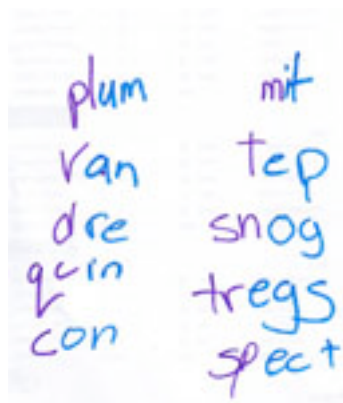 plum
van
dre
quin
con
mit
tep
snog
tregs
spect